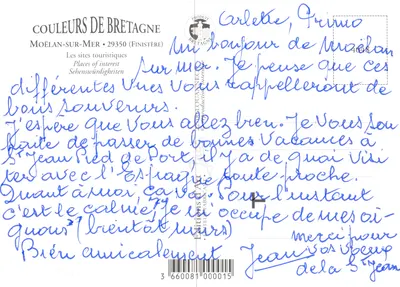 COULEURS DE BRETAGNE
MOËLAN-SUR-MER • 29350 (FINISTÈRE)
Les sites touristiques
Places of interest
Sehenswürdigkeiten
Arlette, Primo
un bonjour de Moëlan
sur mer. Je pense que ces
différentes vues vous rappelleront de
bons souvenirs.
J'espère que vous allez bien. Je vous sou
haite de passer de bonnes vacances à
St Jean Pied de Port, il y a de quoi visi
ter avec l'Espagne toute proche.
Quant à moi ça va. Pour l'instant
c'est le calme, je m'occupe de mes
(bientôt murs)
Bien amicalement
merci pour
vos voeux
de la St Jean
Jean
3 660081 000015